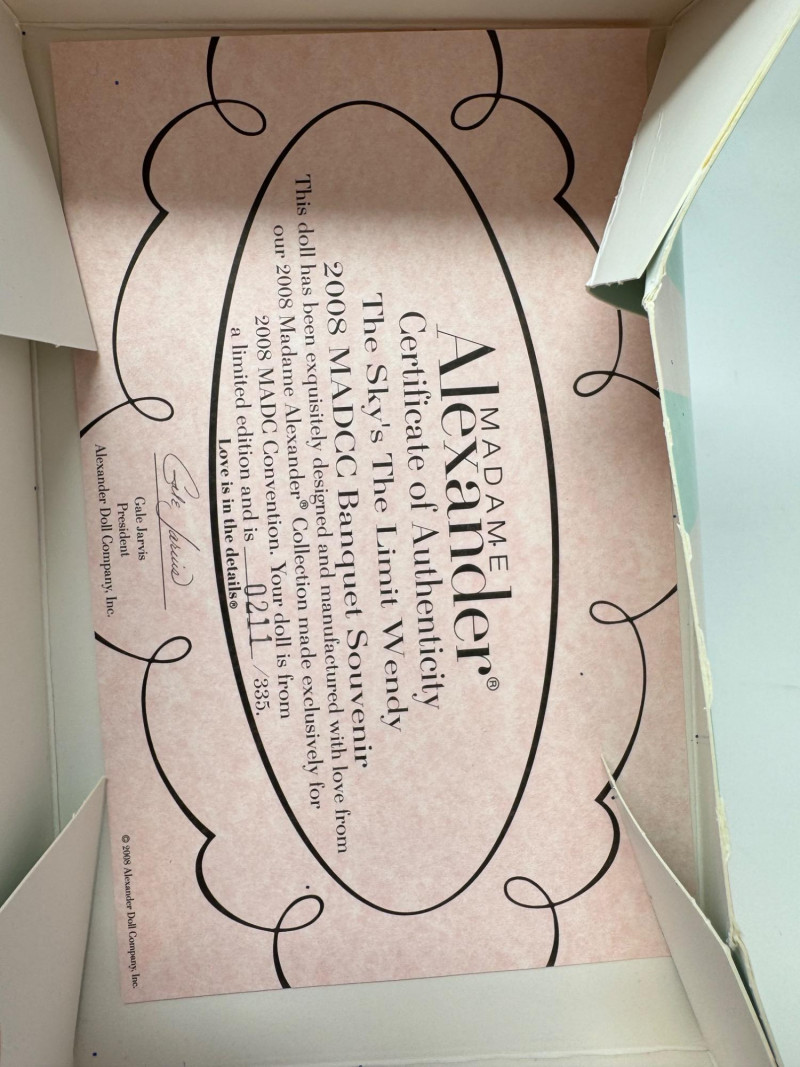 MADAME
Alexander®
Certificate of Authenticity
The Sky's The Limit Wendy
2008 MADCC Banquet Souvenir
This doll has been exquisitely designed and manufactured with love from
our 2008 Madame Alexander® Collection made exclusively for
2008 MADC Convention. Your doll is from
a limited edition and is 0211 /335.
Love is in the details®
Gale Jarvis
Gale Jarvis
President
Alexander Doll Company, Inc.
© 2008 Alexander Doll Company, Inc.